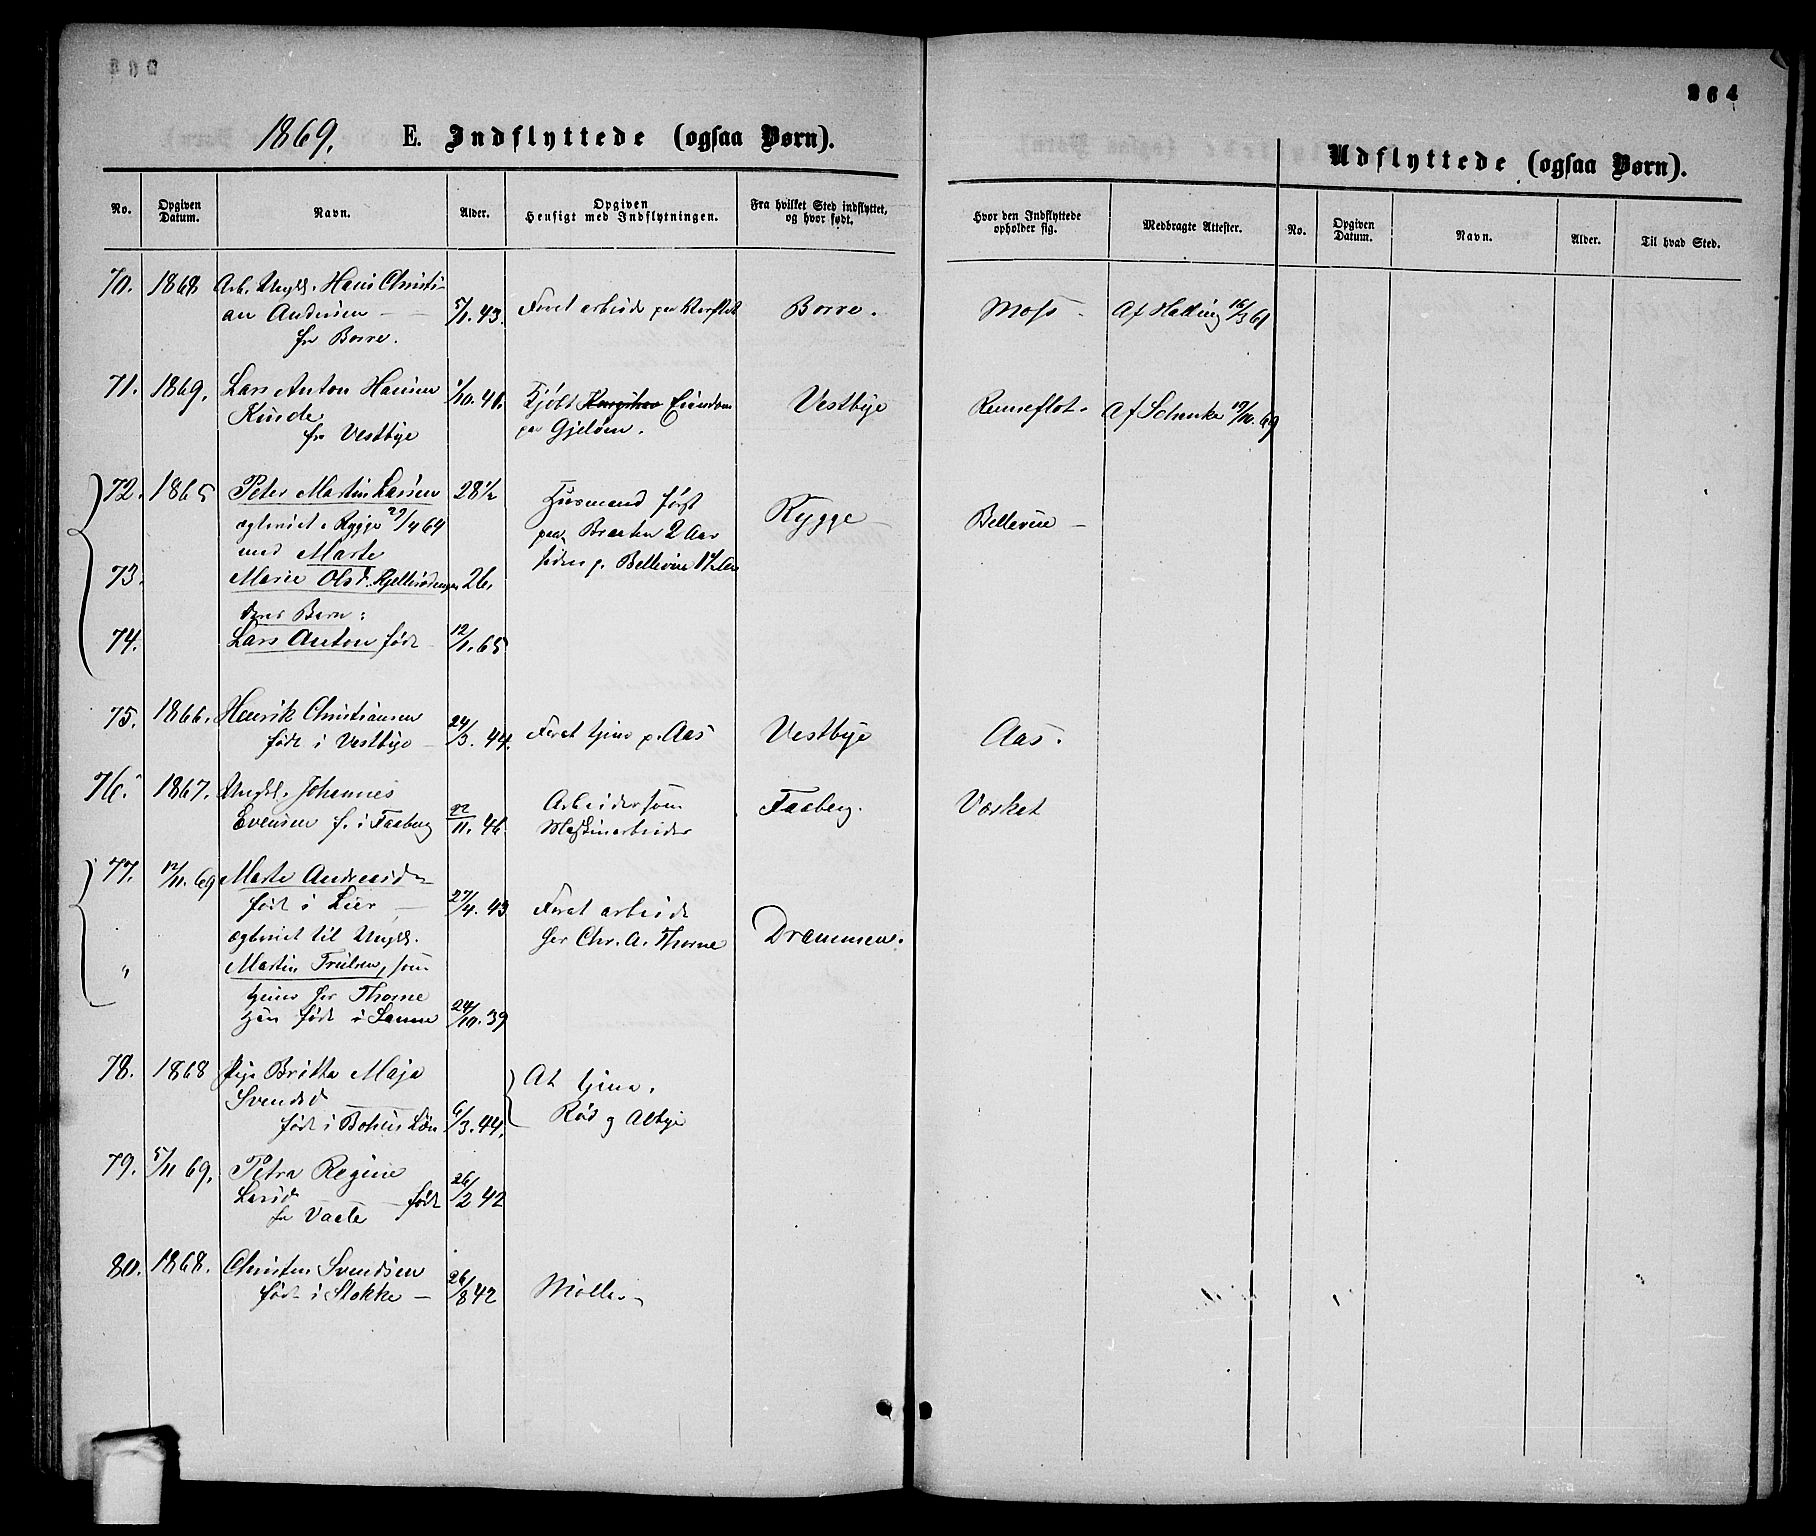 264
1869. E. Indflyttede (ogsaa Børn).
Udflyttede (ogsaa Børn).
No. Opgiven Datum. Navn. Alder. Opgiven Hensigt med Indflytningen. Fra hvilket Sted indflyttet, og hvor født. Hvor den Indflyttede opholder sig. Medbragte Attester. No. Opgiven Datum. Navn. Alder. Til hvad Sted.
70. 1868 Arb. Ungk. Hans Christi-
an Andersen 5/1. 43. Faaet arbeide paa Borre. Moss Af Hasting 16/3 61
fr Borre.
71. 1869. Lars Anton Hansen 1/10. 41. Kjøbt Eiendom Vestbye Renneflot. Af Schenke 19/10. 69
Kinde paa Gjelven.
fr Vestbye
72. 1865 Peter Martin Larsen 28 1/2 Husmand først Rygge Bellevue
ægteviet i Rygge 29/4 64 paa Braaten 2 Aar
med Marte siden p. Bellevue
73. Marie Olsd. 26.
deres Barn:
74. Lars Anton født 12/1. 65
75. 1866. Henrik Christiansen 24/3. 44. Faaet tjene p. Aas Vestbye Aas.
født i Vestbye
76. 1867. Ungk. Johannes 22/11. 46. Arbeider som Faaberg. Værket
Evensen f. i Faaberg Maskinarbeider
77. 12/11. 69 Marte Andreasd
født i Lier 27/4. 43 Faaet arbeide
ægteviet til Ungk. for Chr. A. Thorne Drammen.
" Martin Trulsen, som
tjener for Thorne
Han født i Sanne 24/10. 39
78. 1868 Pige Britta Maja At tjene.
Svendsd Rød og Alby
født i Bohus Län 6/3. 44.
79. 5/11 69. Petra Regine 26/2 42
Larsd født
fr Vaale
80. 1868. Christen Svendsen 26/8 42 Møller
født i Stokke